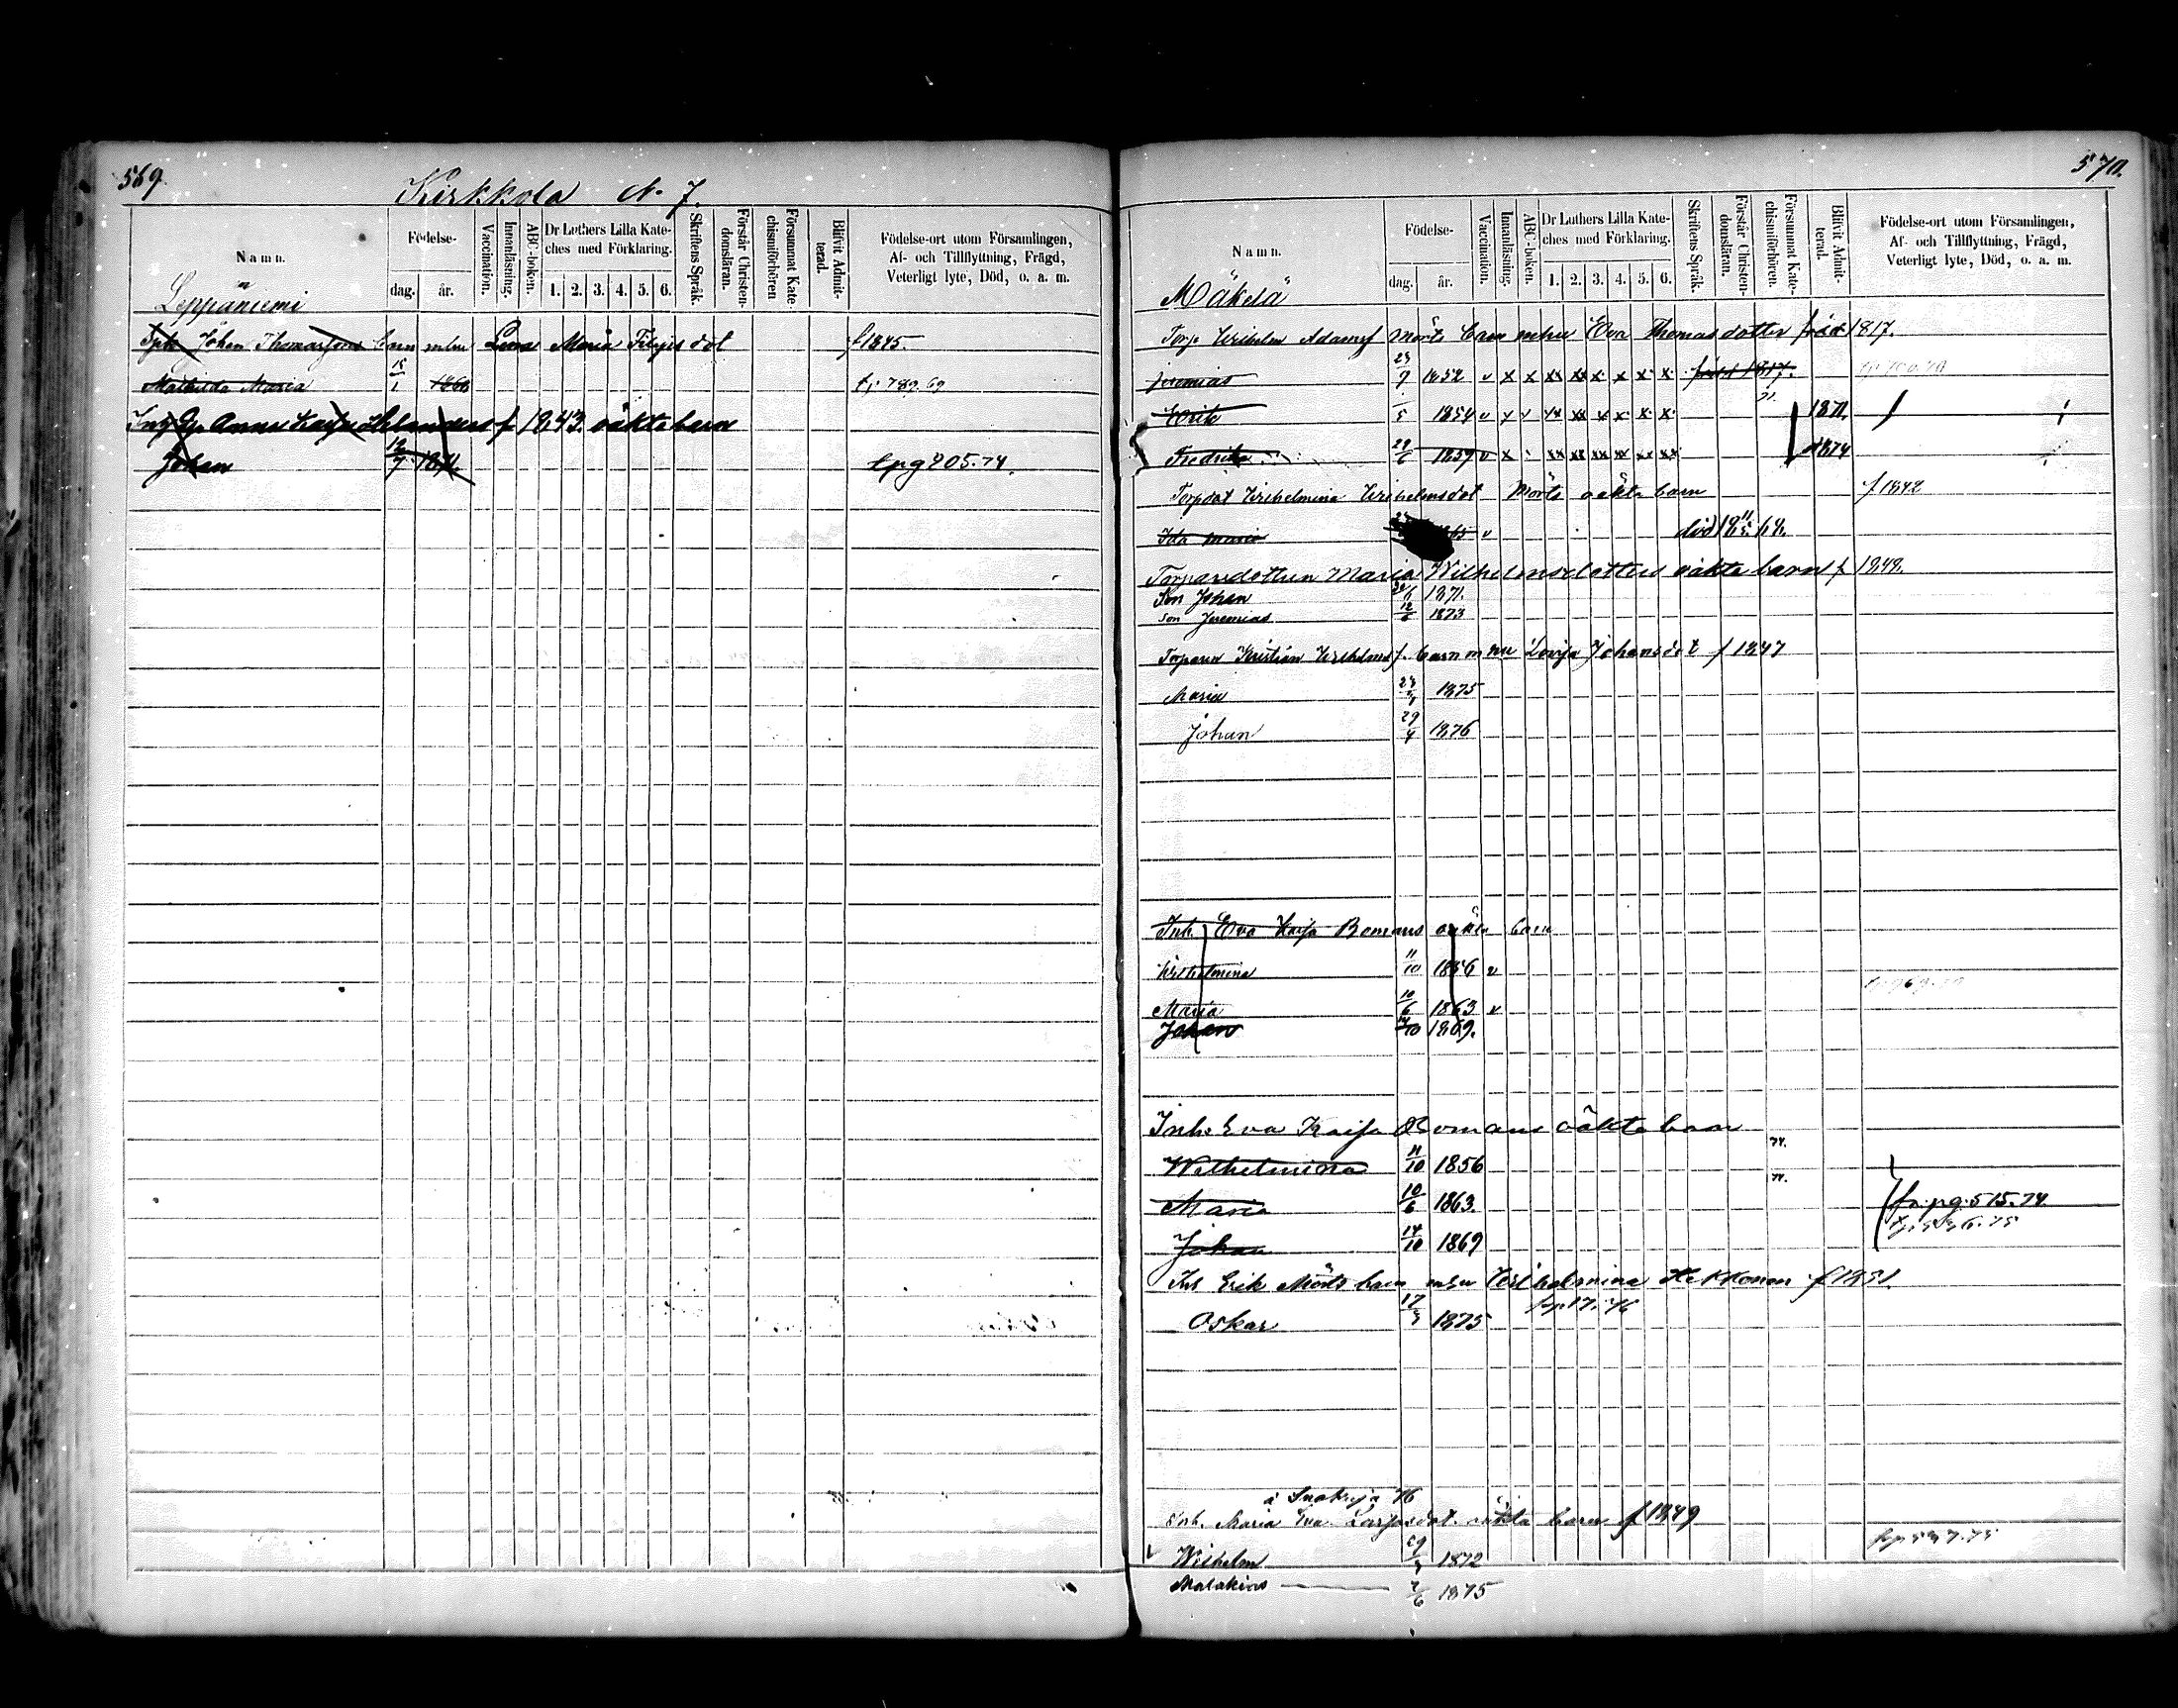 569
Kirkkola N. 7.
Namn.
Födelse-
dag.
år.
Vaccination.
Innanläsning.
ABC-boken.
Dr Luthers Lilla Kate-
ches med Förklaring.
1. 2. 3. 4. 5. 6.
Skriftens Språk.
Förstår Christen-
domsläran.
Försummat Kate-
chismiförhören
Blifvit Admit-
terad.
Födelse-ort utom Församlingen,
Af- och Tillflyttning, Frägd,
Veterligt lyte, Död, o. a. m.
Leppäniemi
Johan Thomassons barn mhu Lena Maria Filpus dot f 1845.
Mathilda Maria 1 1868 789.69
Anna Kajsa f 1843. oäkta barn
Johan 12/7 1871. pg 805.74.
570.
Namn.
Födelse-
dag.
år.
Vaccination.
Innanläsning.
ABC-boken.
Dr Luthers Lilla Kate-
ches med Förklaring.
1. 2. 3. 4. 5. 6.
Skriftens Språk.
Förstår Christen-
domsläran.
Försummat Kate-
chismiförhören.
Blifvit Admit-
terad.
Födelse-ort utom Församlingen,
Af- och Tillflyttning, Frägd,
Veterligt lyte, Död, o. a. m.
Mäkelä
Torp. Wilhelm Adamsf Mörts barn mhu Eva Thomas dotter född 1817.
Jeremias 9 1852 v x x xx xx x x x x född 1817.
Erik 5 1854 v x x x x x x 71. 1871.
Fredrika 6 1859 v x xx xx xx xx xx xx 1874
Torpdot Wilhelmina Wilhelmsdot Mörts oäkta barn f 1842
Ida Maria 1865 v död 18 11/5 68.
Torparedottren Maria Wilhelmsdotters oäkta barn f 1848.
Son Johan 1871.
son Jeremias 12/6 1873
Torparen Kristian Wilhelmsf. barn m mhu Lovisa Johansdot f 1847
Maria 1875
Johan 29/4 1876
Inh. Eva Kaisa Bomans oäkta barn
Wilhelmina 11/10 1856 v
Maria 10/6 1863 v
Johan 14/10 1869.
Inh. Eva Kaisa Bomans oäkta barn
Wilhelmina 11/10 1856 74.
Maria 10/6 1863. 74. fr. pg. 515. 74.
Johan 14/10 1869
Inh Erik Mörts barn mhu Wilhelmina Hekkonen f 1851.
Oskar 17/3 1875 17. 76
76
Inh. Maria Eva oäkta barn f 1849
Wilhelm 1872
Malakias 6 1875